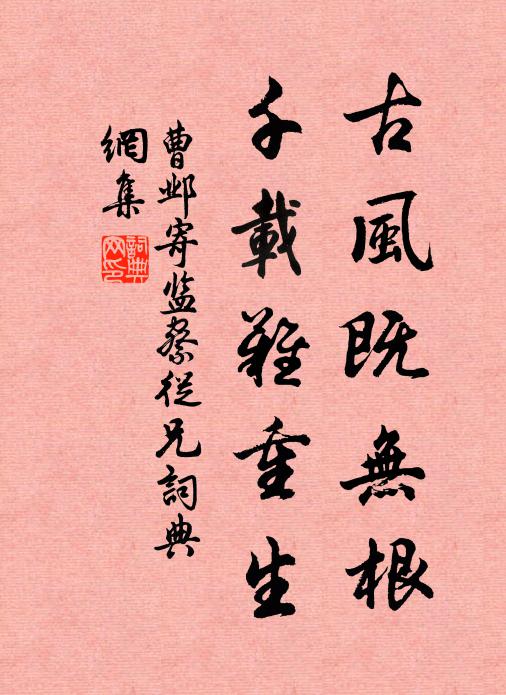 古風既無根
千載難重生
曹邺寄监察從兄詞典
網集
詞典
网印